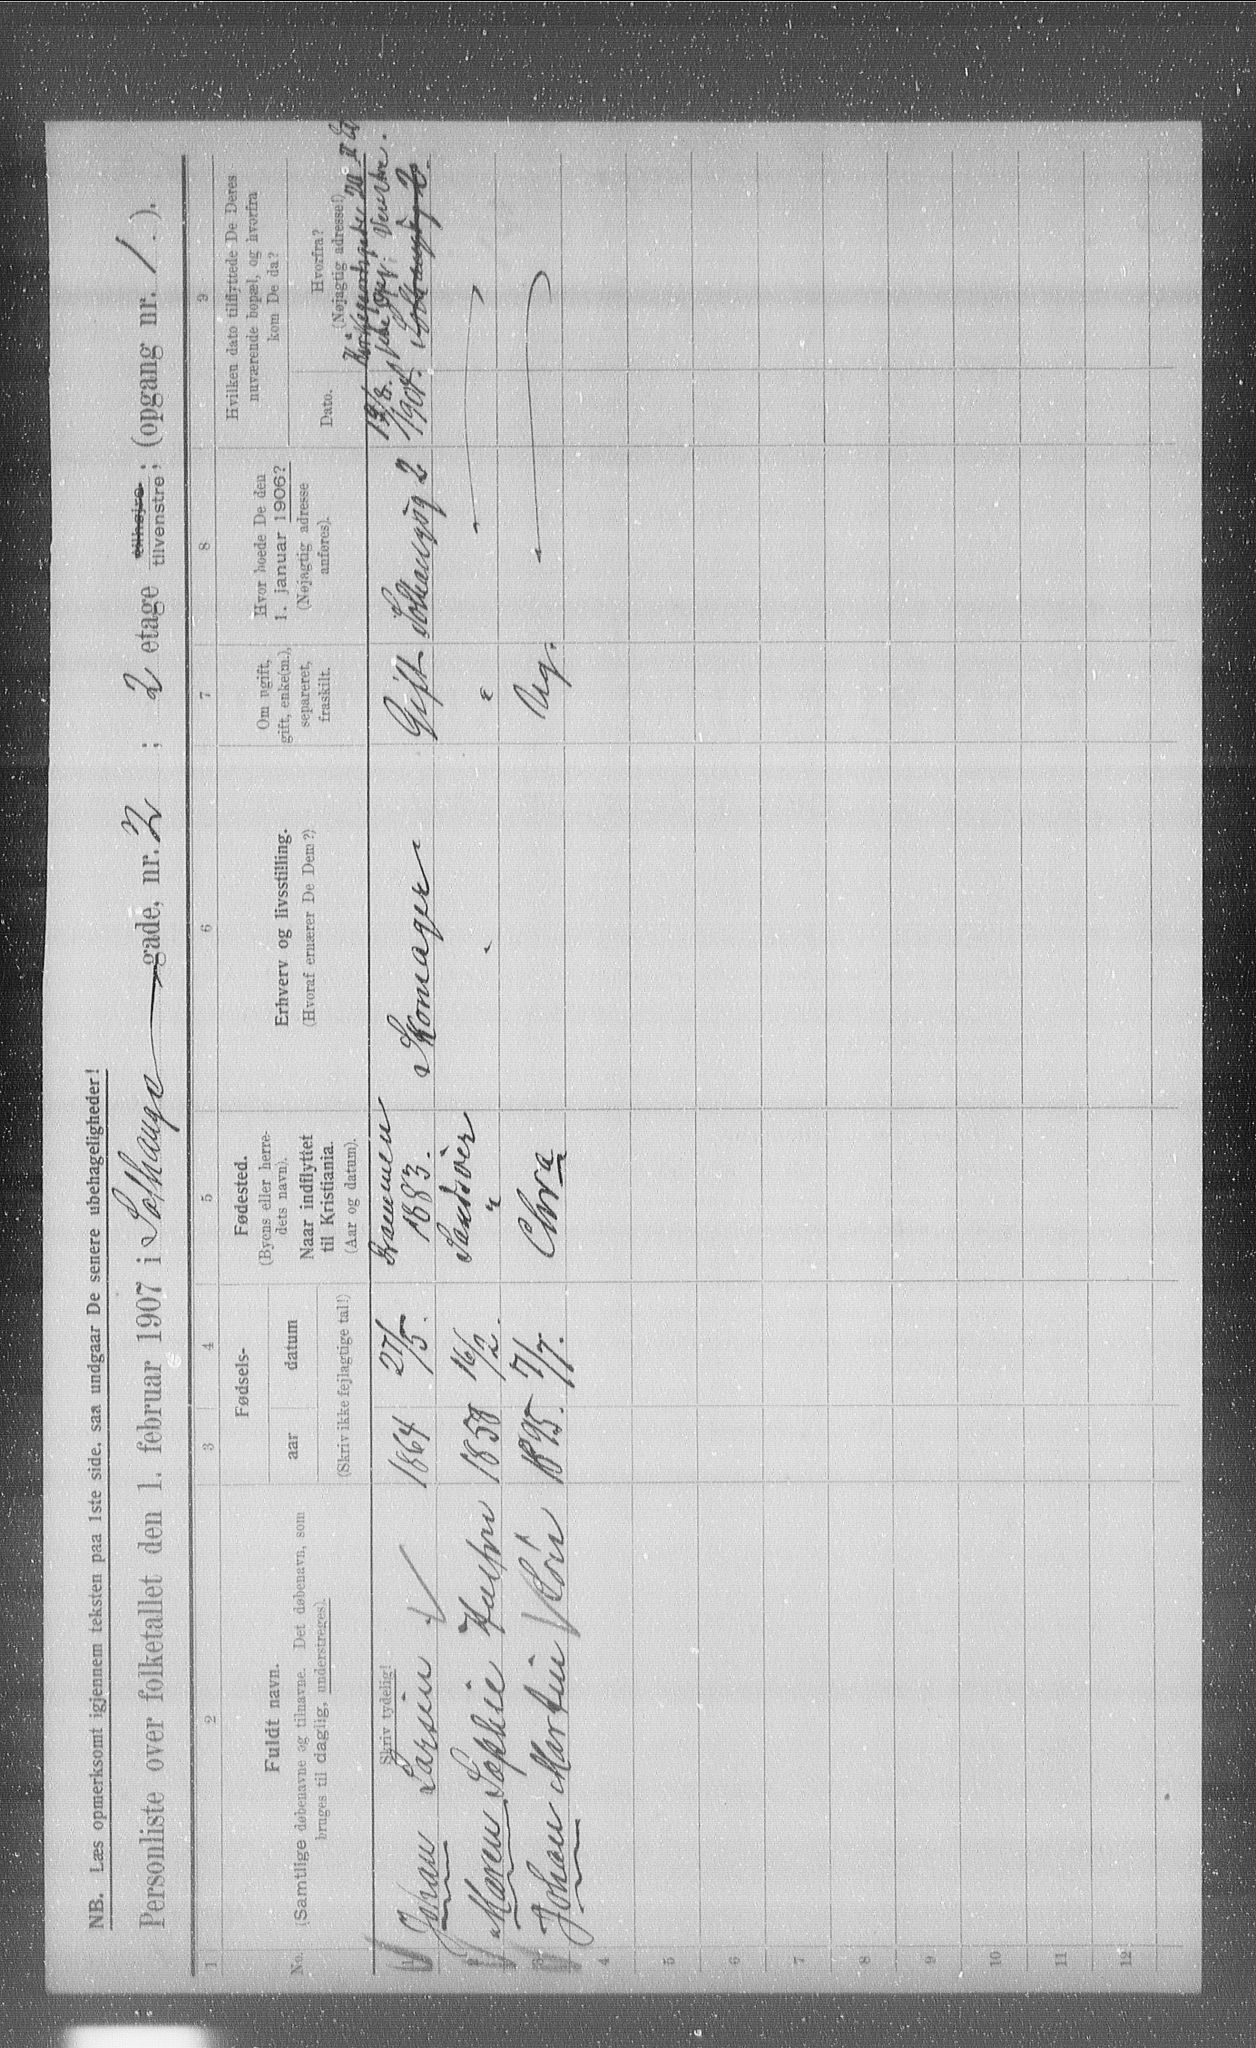 NB. Læs opmerksomt igjennem teksten paa 1ste side. saa undgaar De senere ubehageligheder!
Personliste over folketallet den 1. februar 1907 i Solhaugs gade, nr. 2 ; 2 etage tilhøjre tilvenstre ; (opgang nr. 1 ).
1 2 3 4 5 6 7 8 9
No.
Fuldt navn.
(Samtlige døbenavne og tilnavne. Det døbenavn, som
bruges til daglig, understreges).
Fødsels-
aar datum
(Skriv ikke fejlagtige tal!)
Fødested.
(Byens eller herre-
dets navn).
Naar indflyttet
til Kristiania.
(Aar og datum).
Erhverv og livsstilling.
(Hvoraf ernærer De Dem?)
Om ugift,
gift, enke(m.),
separeret,
fraskilt.
Hvor boede De den
1. januar 1906?
(Nøjagtig adresse
anføres).
Hvilken dato tilflyttede De Deres
nuværende bopæl, og hvorfra
kom De da?
Dato.
Hvorfra?
(Nøjagtig adresse!)
Skriv tydelig!
1 Johan Larsen 1864 27/5. 1883. Skomager Gift Solhaugsg 2
2 Maren Sophie 1858 16/2. " " "
3 Johan Martin 1895. 7/7. Chra Ug. "
4
5
6
7
8
9
10
11
12